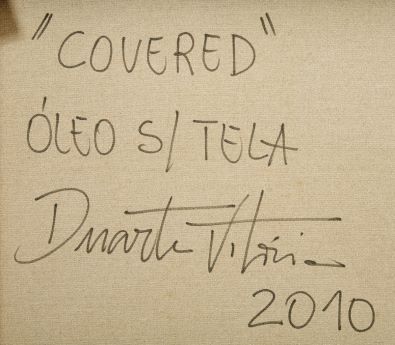 "COVERED"
ÓLEO S/ TELA
Duarte Vitória
2010